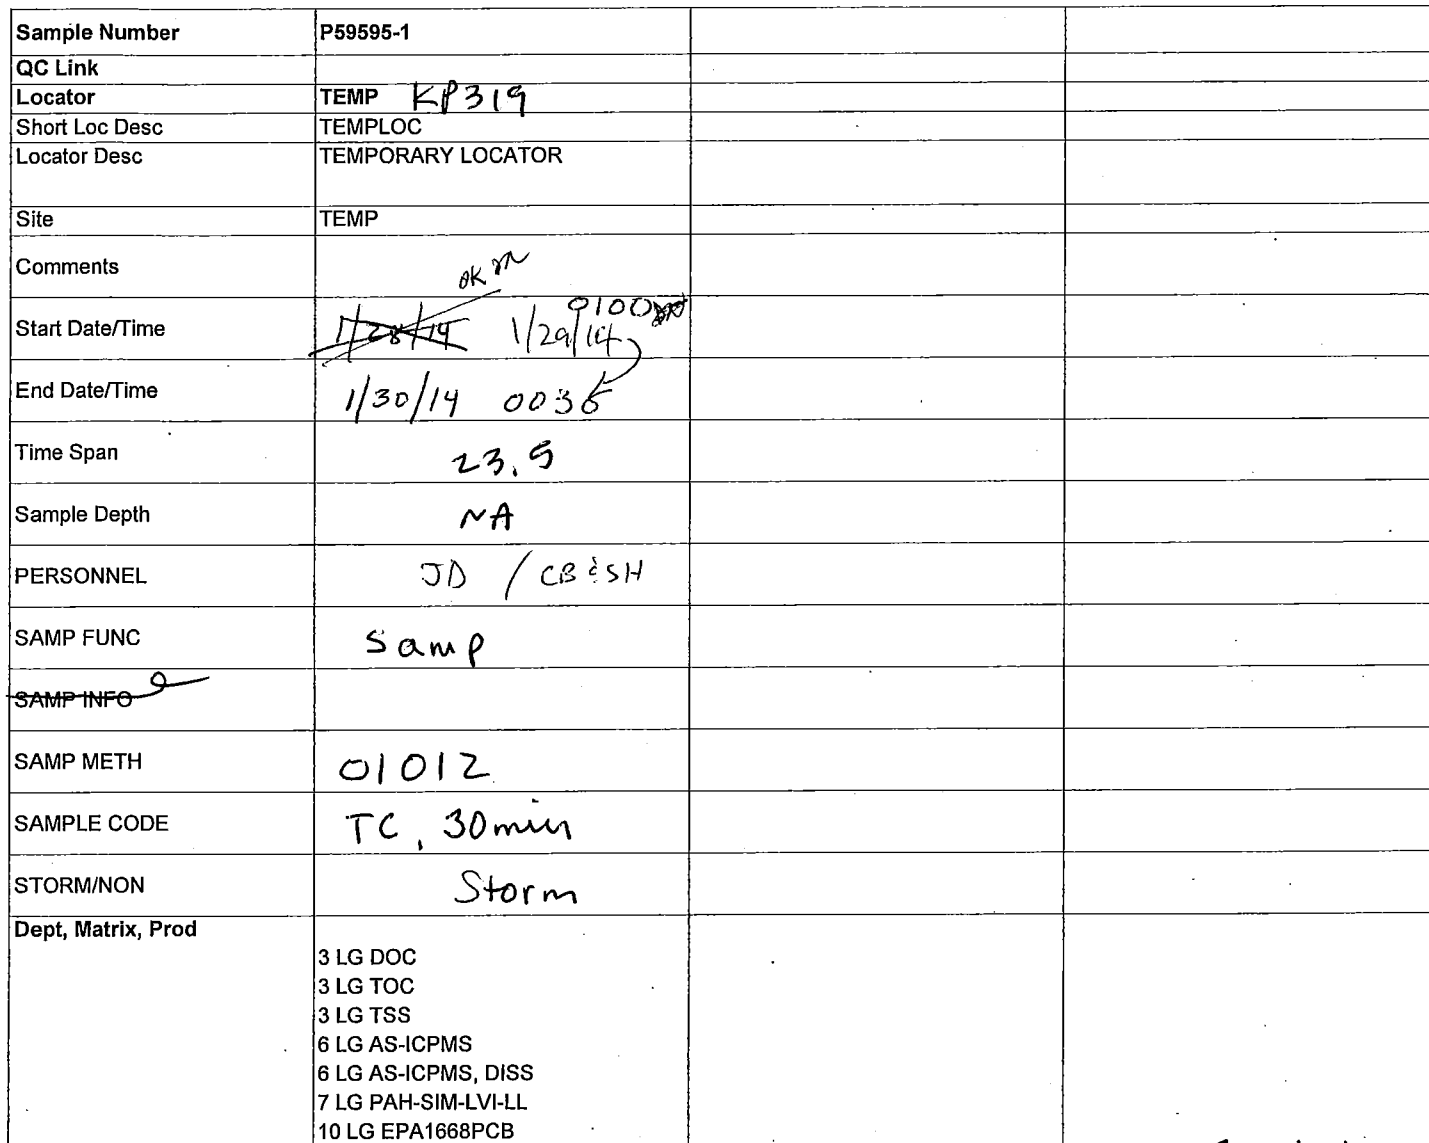 Sample Number P59595-1
QC Link
Locator TEMP KP319
Short Loc Desc TEMPLOC
Locator Desc TEMPORARY LOCATOR
Site TEMP
Comments
OK
0100
Start Date/Time 1/28/14 1/29/14
End Date/Time 1/30/14 0035
Time Span 23.5
Sample Depth NA
PERSONNEL JD / CB & SH
SAMP FUNC Samp
SAMP INFO
SAMP METH 01012
SAMPLE CODE TC, 30min
STORM/NON Storm
Dept, Matrix, Prod
3 LG DOC
3 LG TOC
3 LG TSS
6 LG AS-ICPMS
6 LG AS-ICPMS, DISS
7 LG PAH-SIM-LVI-LL
10 LG EPA1668PCB